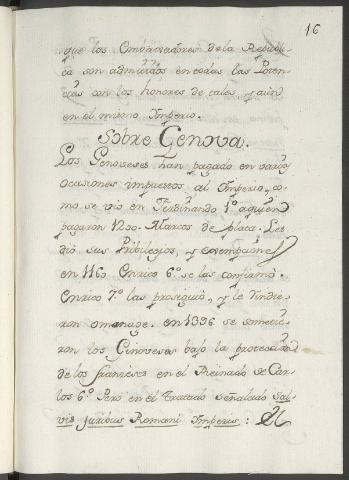 16
que los Embaxadores de la Republi-
ca son admitidos en todas las Poten-
cias con los honores de tales, y aún
en el mismo Imperio.
Sobre Genova.
Los Genoveses han pagado en varias
ocasiones impuestos al Imperio, co-
mo se vio en Ferdinando 1º a quien
pagaron 1200. Marcos de plata. Les
dió sus Pribilegios, y exempciones
en 1160. Enrico 6º se los confirmó.
Enrico 7º las prosiguió, y le rindie-
ron omenage. en 1396 se sometie-
ron los Ginoveses bajo la proteccion
de los franceses en el Reinado de Car-
los 6º Pero en el Tratado señalado Sal-
vis juribus Romani Imperii: